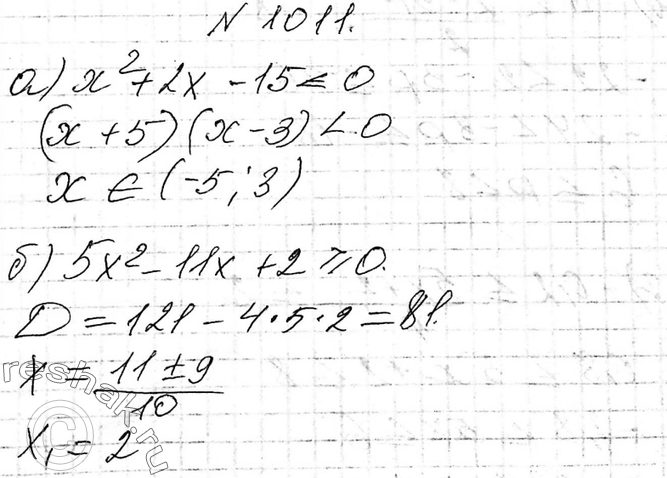 N 1011.
а) x² + 2x - 15 < 0
(x + 5) (x - 3) < 0
x ∈ (-5; 3)
б) 5x² - 11x + 2 ≥ 0.
D = 121 - 4 · 5 · 2 = 81.
x = (11 ± 9)/10
x₁ = 2
reshak.ru